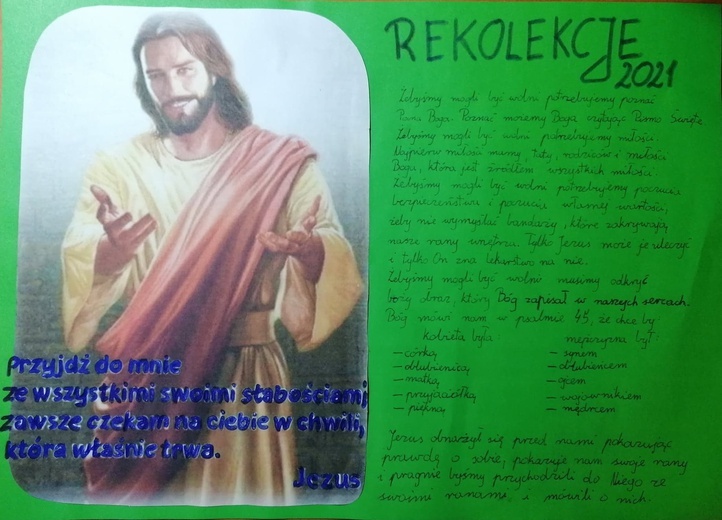 Przyjdź do mnie
ze wszystkimi swoimi słabościami
Zawsze czekam na ciebie w chwili,
która właśnie trwa.
Jezus
REKOLEKCJE
2021
Żebyśmy mogli być wolni potrzebujemy poznać
Pana Boga. Poznać możemy Boga czytając Pismo Święte
Żebyśmy mogli być wolni potrzebujemy miłości.
Najpierw miłości mamy, taty, rodziców i miłości
Boga, która jest źródłem wszystkich miłości.
Żebyśmy mogli być wolni potrzebujemy poczucia
bezpieczeństwa i poczucia własnej wartości,
żeby nie wymyślać bandaży, które zakrywają
nasze rany wnętrza. Tylko Jezus może je uleczyć
i tylko On zna lekarstwo na nie.
Żebyśmy mogli być wolni musimy odkryć
boży obraz, który Bóg zapisał w naszych sercach.
Bóg mówi nam w psalmie 45, że chce by:
kobieta była: mężczyzna był:
– córką – synem
– oblubienicą – oblubieńcem
– matką – ojcem
– przyjaciółką – wojownikiem
– piękną – mędrcem
Jezus obnażył się przed nami pokazując
prawdę o sobie, pokazuje nam swoje rany
i pragnie byśmy przychodzili do Niego ze
swoimi ranami i mówili o nich.